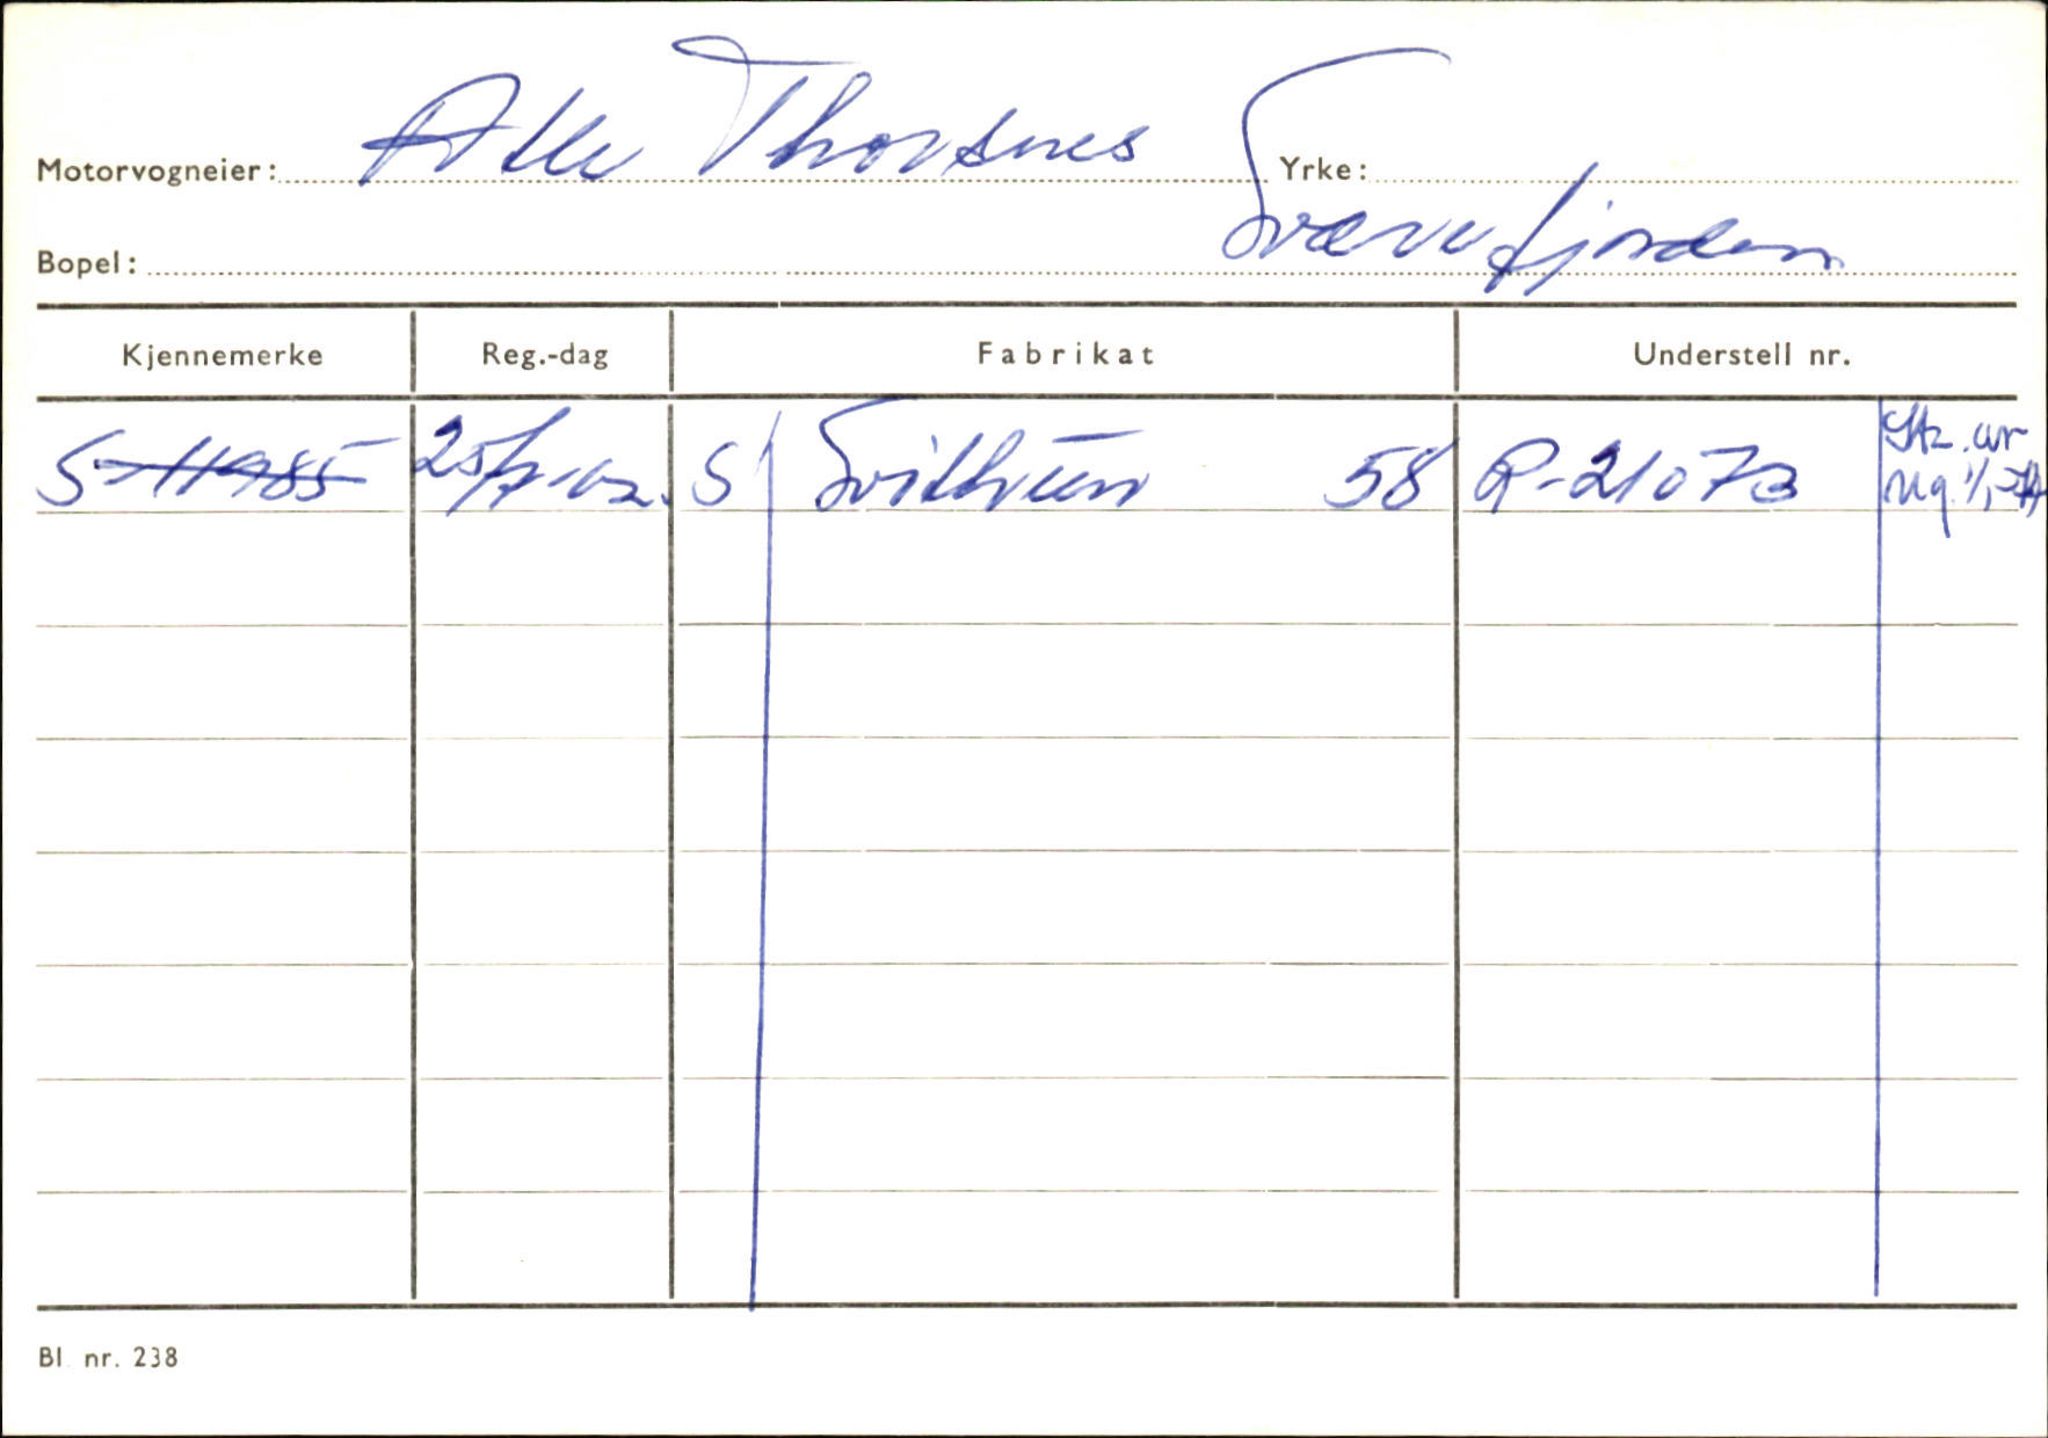 Motorvogneier: Atle Thorsnes Yrke:
Bopel: Sværefjorden
Kjennemerke Reg.-dag Fabrikat Understell nr.
S-11985 25/7-62. S Svithun 58 R-21073
Bl. nr. 238